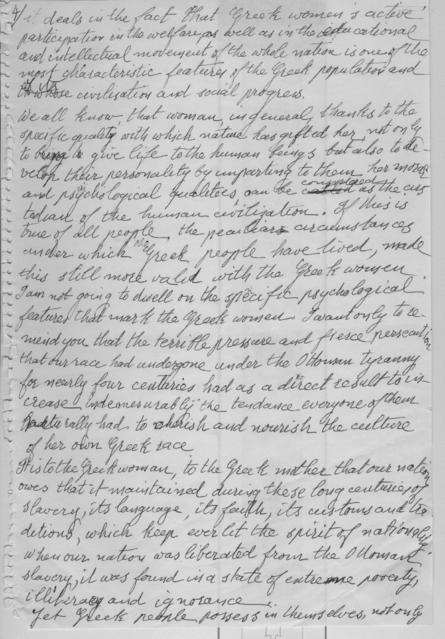 it deals in the fact that Greek women's active
participation in the welfare, as well as in the educational
and intellectual movement of the whole nation is one of the
most characteristic features of the Greek population and
whose civilisation and social progress.
We all know, that woman, in general, thanks to the
specific quality with which nature has gifted her not only
to give life to the human beings but also to de-
velop their personality by imparting to them her moral
and psychological qualities, can be considered as the cus
todian of the human civilization. If this is
true of all people, the peculiar circumstances
under which the Greek people have lived, made
this still more valid with the Greek women.
I am not going to dwell on the specific psychological
features that mark the Greek women I want only to re-
mind you that the terrible pressure and fierce persecution
that our race had undergone under the Ottoman tyranny
for nearly four centuries had as a direct result to in-
crease indemesurably the tendance everyone of them
naturally had to cherish and nourish the culture
of her own Greek race
It is to the Greek woman, to the Greek mother that our nation
owes that it maintained during these long centuries of
slavery, its language, its faith, its customs and tra
ditions, which keep ever lit the spirit of nationality
when our nation was liberated from the Ottoman
slavery, it was found in a state of extreme poverty,
illiteracy and ignorance
Yet Greek people possess in themselves, not only